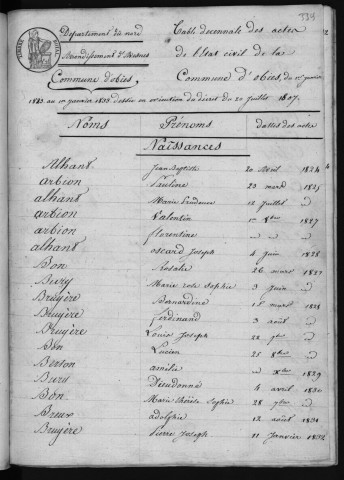 334
Département du nord
Arrondissement d'Avesnes
Commune d'obies
Table décennale des actes
de l'état civil de la
Commune d'obies, du 1er janvier
1823 au 1er janvier 1833 dressée en exécution du décret du 20 Juillet 1807.
Noms Prénoms Dattes des actes
Naissances
Alhant Jean Baptiste 20 Avril 1824
arbion Pauline 23 mars 1827
alhant Marie Prudence 12 Juillet id
arbion Valentin 1er 8bre 1827
arbion florentine id id
alhant oscard Joseph 4 Juin 1828
Bon Rosalie 26 mars 1823
Bury Marie rose Sophie 3 Juin id
Bruyère Bernardine 18 mars 1824
Bruyère ferdinand 3 août id
Bruyère Louis Joseph 28 7bre id
Bon Lucien 25 8bre id
Berton amélie Xbre 1829
Bury Dieudonné 4 avril 1830
Bon Marie thérèse Sophie 28 7bre id
Breux adolphe 12 août 1831
Bruyère Pierre Joseph 11 Janvier 1832